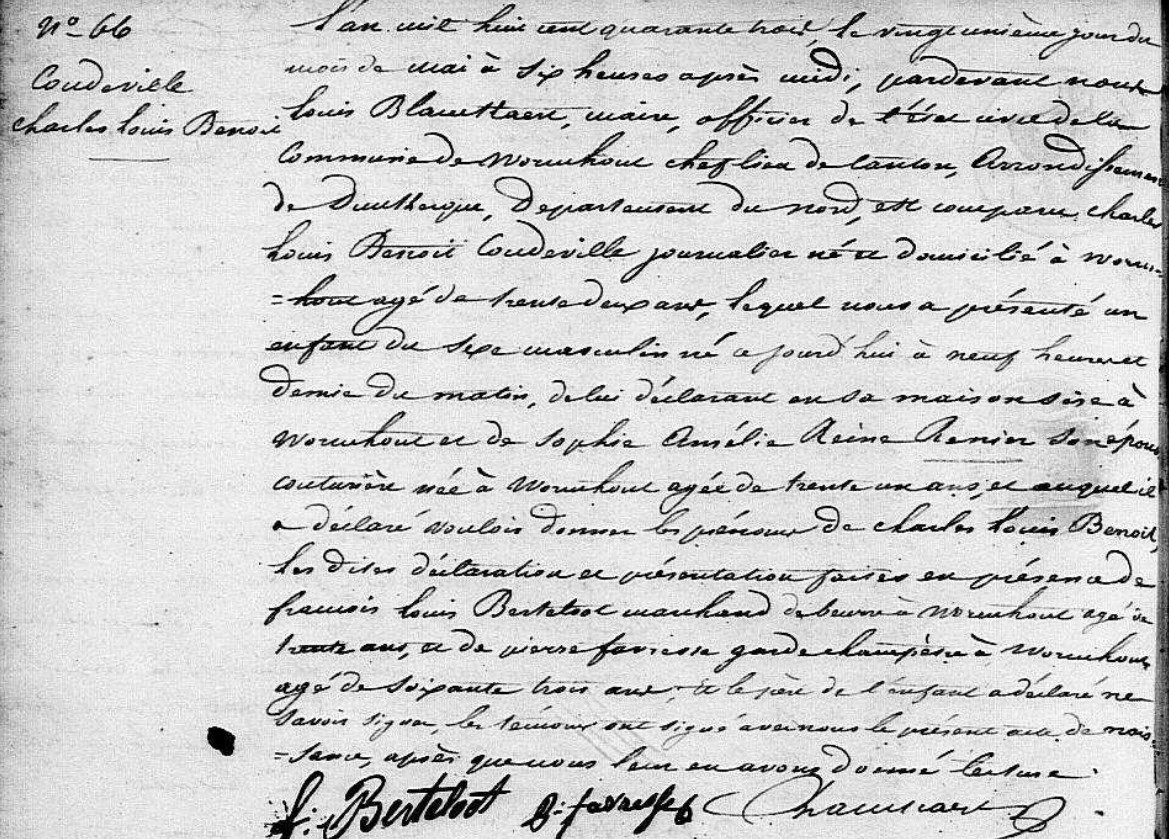 N° 66
Coudeville
charles Louis Benoit
L'an mil huit cent quarante trois, le vingt unième jour du
mois de mai à six heures après midi, pardevant nous
Louis Blauttaert, maire, officier de l'état civil de la
Commune de Wormhout chef lieu de Canton, Arrondissement
de Dunkerque, Département du nord, est comparu charles
Louis Benoit Coudeville journalier né et domicilié à Worm=
=hout agé de trente deux ans, lequel nous a présenté un
enfant du sexe masculin né ce jourd'hui à neuf heures et
demie du matin, de lui déclarant en sa maison sise à
Wormhout et de Sophie Amélie Reine Renier son épouse
couturière née à Wormhout agée de trente un ans, et auquel il
a déclaré vouloir donner les prénoms de charles Louis Benoit,
les dites déclaration et présentation faites en présence de
francois Louis Berteloot marchand de beurre à Wormhout agé de
trente ans, et de pierre favresse garde champêtre à Wormhout
agé de soixante trois ans, Et le père de l'enfant a déclaré ne
savoir signer, les témoins ont signé avec nous le présent acte de nais=
=sance, après que nous leur en avons donné lecture.
f: Berteloot P: favresse